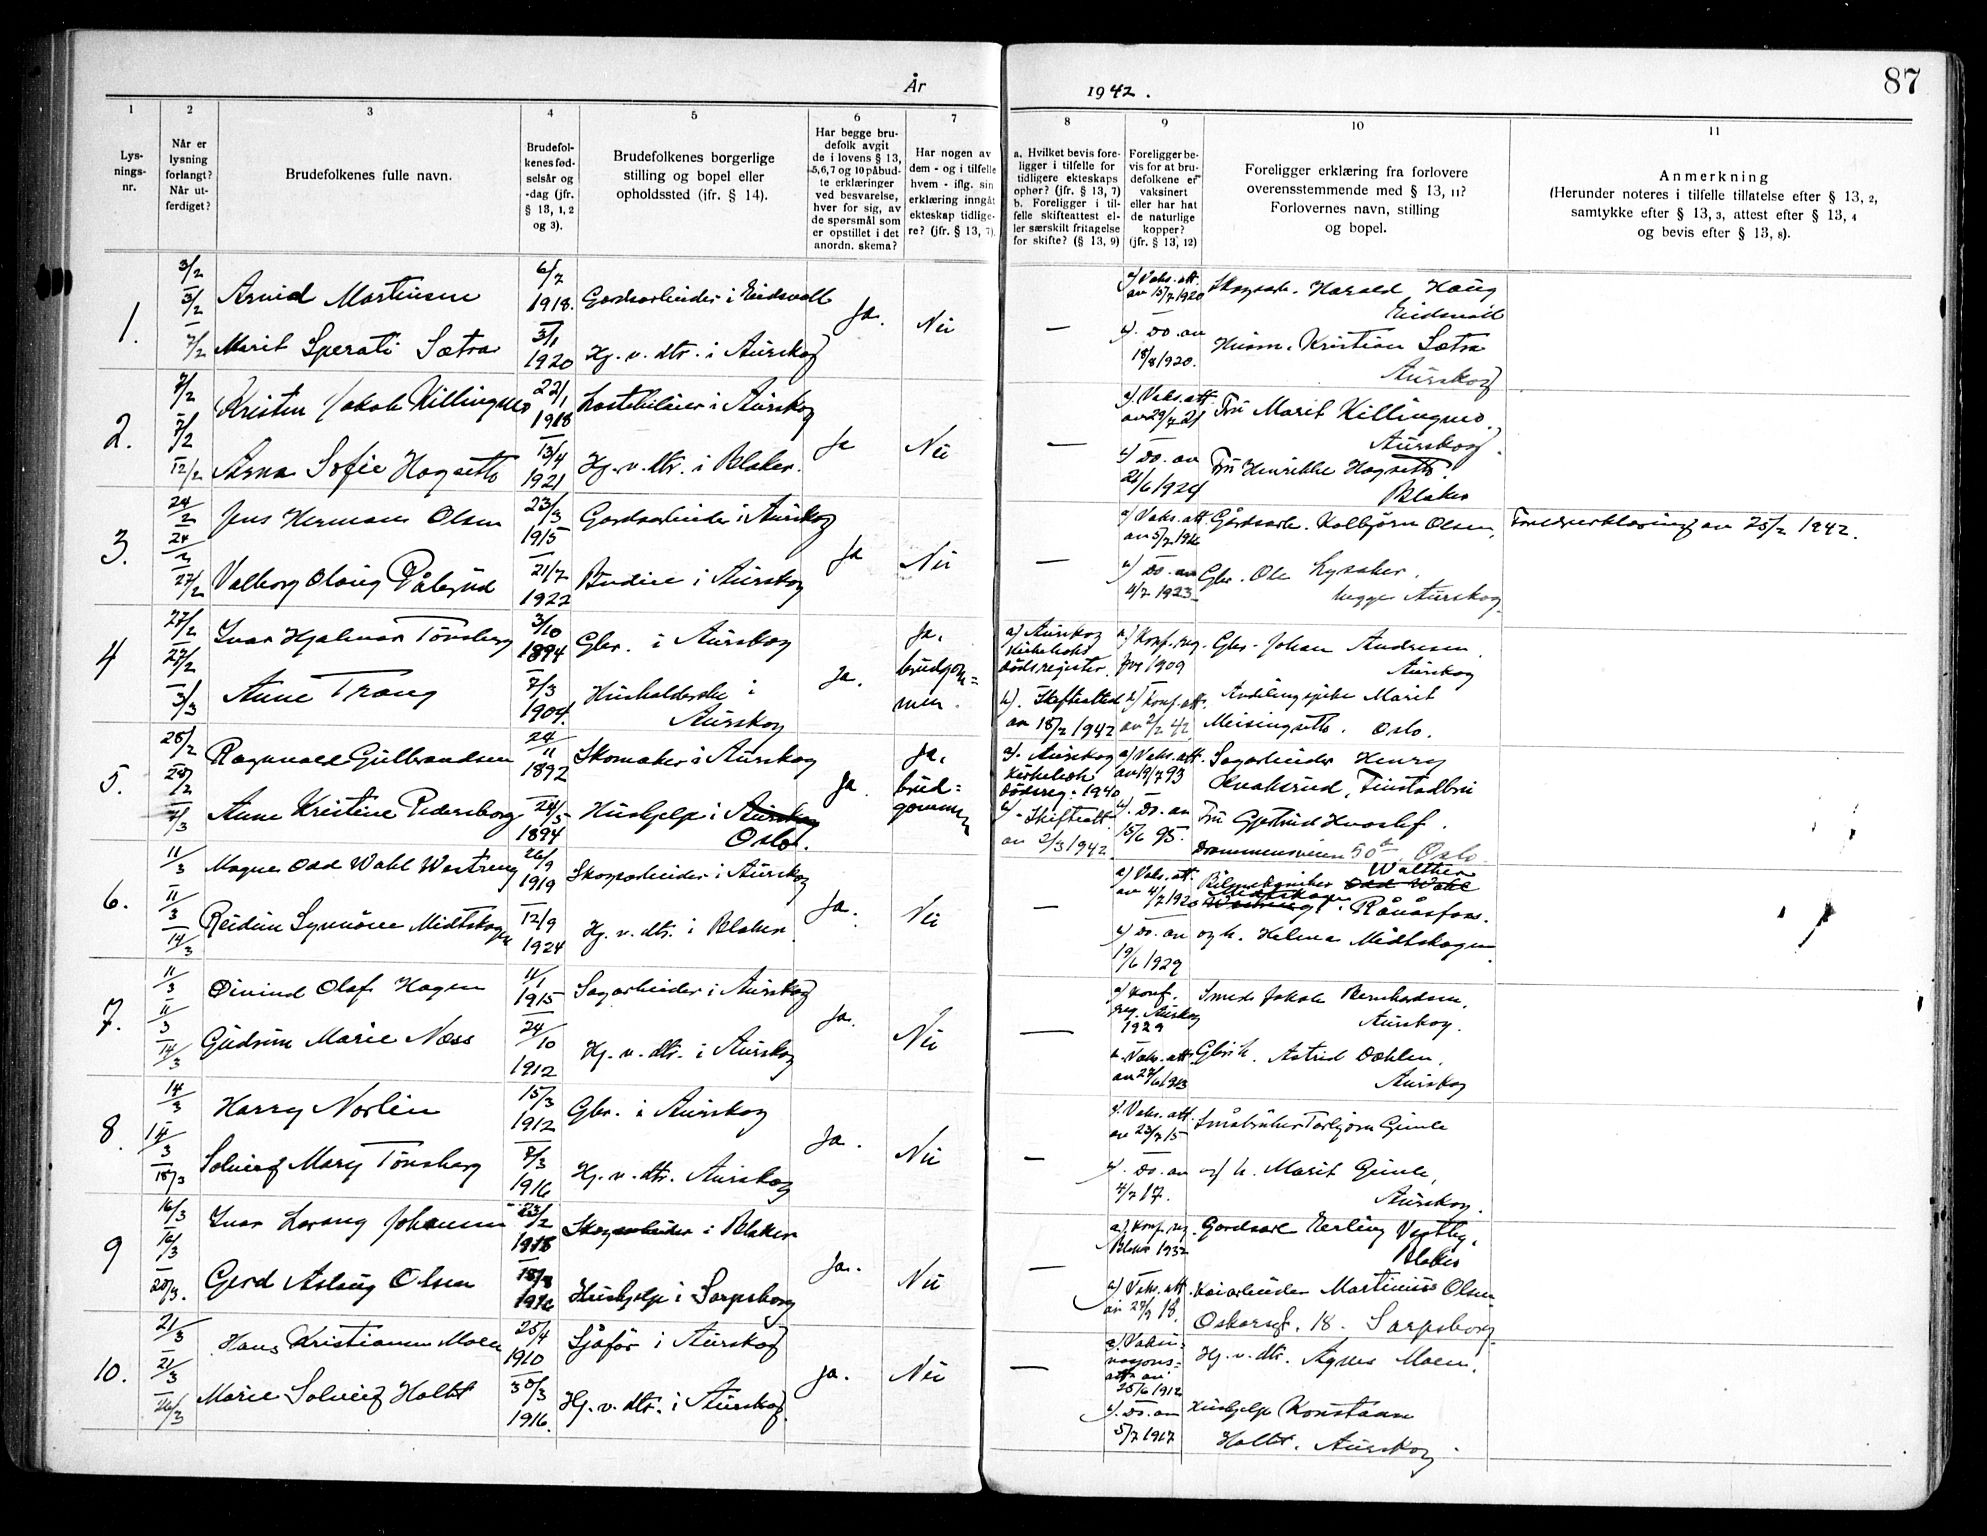 År
1942.
87
1
Lys-
nings-
nr.
2
Når er
lysning
forlangt?
Når ut-
ferdiget?
3
Brudefolkenes fulle navn.
4
Brudefol-
kenes fød-
selsår og
-dag (jfr.
§ 13, 1, 2
og 3).
5
Brudefolkenes borgerlige
stilling og bopel eller
opholdssted (jfr. § 14).
6
Har begge bru-
defolk avgit
de i lovens § 13,
5, 6, 7 og 10 påbud-
te erklæringer
ved besvarelse,
hver for sig, av
de spørsmål som
er opstillet i det
anordn. skema?
7
Har nogen av
dem - og i tilfelle
hvem - iflg. sin
erklæring inngåt
ekteskap tidlige-
re? (jfr. § 13, 7).
8
a. Hvilket bevis fore-
ligger i tilfelle for
tidligere ekteskaps
ophør? (jfr. § 13, 7)
b. Foreligger i til-
felle skifteattest el-
ler særskilt fritagelse
for skifte? (§ 13, 9)
9
Foreligger be-
vis for at bru-
defolkene er
vaksinert
eller har hat
de naturlige
kopper?
(jfr. § 13, 12)
10
Foreligger erklæring fra forlovere
overensstemmende med § 13, 11?
Forlovernes navn, stilling
og bopel.
11
Anmerkning
(Herunder noteres i tilfelle tillatelse efter § 13, 2,
samtykke efter § 13, 3, attest efter § 13, 4
og bevis efter § 13, 8).
1.
3/2
3/2
7/2
Arvid Martinsen
6/7
1918.
Gardsarbeider i Eidsvoll
Marit Sperati Sætra
3/1
1920
Hj. v. dtr. i Aurskog
Ja.
Nei
—
a) Vaks. att.
av 15/7 1920
b). Do. av
18/8 1920.
Skogsarb. Harald Haug
Eidsvoll
Husm. Kristian Sætra
Aurskog
2.
7/2
7/2
12/2
Kristen Jakob Killingmo
22/1
1918
Lastebileier i Aurskog
Arna Sofie Hogseth
13/4
1921
Hj. v. dtr. i Blaker.
Ja
Nei
—
a). Vaks. att.
av 29/7 21
b) Do. av
21/6 1924
Fru Marit Killingmo.
Aurskog.
Fru Henrikke Hogseth.
Blaker
3.
24/2
24/2
27/2
Jens Herman Olsen
23/3
1915
Gardsarbeider i Aurskog
Valborg Olaug Pålerud
21/7
1922
Budeie i Aurskog
Ja
Nei
—
a) Vaks. att.
av 5/7 1916
b) Do. av
4/7 1923
Gårdsarb. Kolbjørn Olsen,
Gbr. Ole Lysaker.
begge Aurskog.
25/2 1942.
4
27/2
27/2
3/3
Ivar Hjalmar Tønsberg
3/10
1894
Gbr. i Aurskog
Anne Trang
7/3
1904.
Husholderske i
Aurskog
Ja.
Ja,
brudgom=
men.
a) Aurskog
kirkeboks
dødsregister.
b). Skifteattest
av 18/2 1942
a) Konf. reg.
for 1909
b) Konf. att.
av 2/2 42
Gbr. Johan Andresen.
Aurskog
Avdelingssjuke Marit
Meisingseth. Oslo.
5.
28/2
28/2
7/3
Ragnvald Gulbrandsen
24/11
1892
Skomaker i Aurskog
Anne Kristine Pedersborg
24/5
1894
Hushjelp i Aurskog
Oslo.
Ja
Ja,
brud=
gommen
a). Aurskog
kirkebok
dødsreg. 1940
b) - Skifteatt.
av 2/3 1942
a) Vaks. att.
av 19/7 93
b). Do. av
15/6 95.
Sagarbeider Henry
Kvaksrud, Finstadbru
Fru Gjertrud Kvaslef.
Drammensveien 50 d Oslo.
6.
11/3
11/3
14/3
Magne Odd Wahl Westreng
26/9
1919
Skogsarbeider i Aurskog
Reidun Synnøve Midtskogen
12/9
1924
Hj. v. dtr. i Blaker
Ja.
Nei
—
a) Vaks. att.
av 4/7 1920
b) Do. av
19/6 1929
Bilmekaniker Odd Wahl Walther
Westreng Midtskogen. Rånåsfoss.
og h. Helma Midtskogen
7.
11/3
11/3
14/3
Øivind Olaf Hagen
11/1
1915
Sagarbeider i Aurskog
Gudrun Marie Næss
24/10
1912
Hj. v. dtr. i Aurskog
Ja.
Nei
—
a) Konf.
reg. Aurskog
1929
b. Vaks. att.
av 27/6 1913
Smed Jakob Bernhardsen,
Aurskog.
Gbr. h. Astrid Dæhlen.
Aurskog
8.
14/3
14/3
18/3
Harry Norlin
15/3
1912
Gbr. i Aurskog
Solveig Mary Tønsberg
7/3
1916
Hj. v. dtr. Aurskog
Ja.
Nei
—
a). Vaks. att.
av 23/7 15
b). Do. av
4/7 17.
Småbruker Torbjørn Gimle
og h. Marit Gimle,
Aurskog.
9
16/3
16/3
20/3.
Ivar Lorang Johansen
23/2
1918
Skogsarbeider i Blaker
Gerd Aslaug Olsen
18/8
1916
Hushjelp i Sarpsborg
Ja.
Nei
—
a). Konf. reg.
Blaker 1932
b) Vaks. att.
av 27/9 18.
Gardsarb. Erling Vestby,
Blaker
Kaiarbeider Martinius Olsen
Oskarsgt. 18. Sarpsborg
10.
21/3
21/3
26/3
Hans Kristianen Moen
25/4
1910
Sjåfør i Aurskog
Marie Solveig Holtet
30/3
1916.
Hj. v. dtr. i Aurskog.
Ja.
Nei
—
a). Vaksi-
nasjons-
att. av
25/6 1912
b). Do. av
5/7 1917
Hj. v. dtr. Agnes Moen.
Hushjelp Konstanse
Holtet. Aurskog.